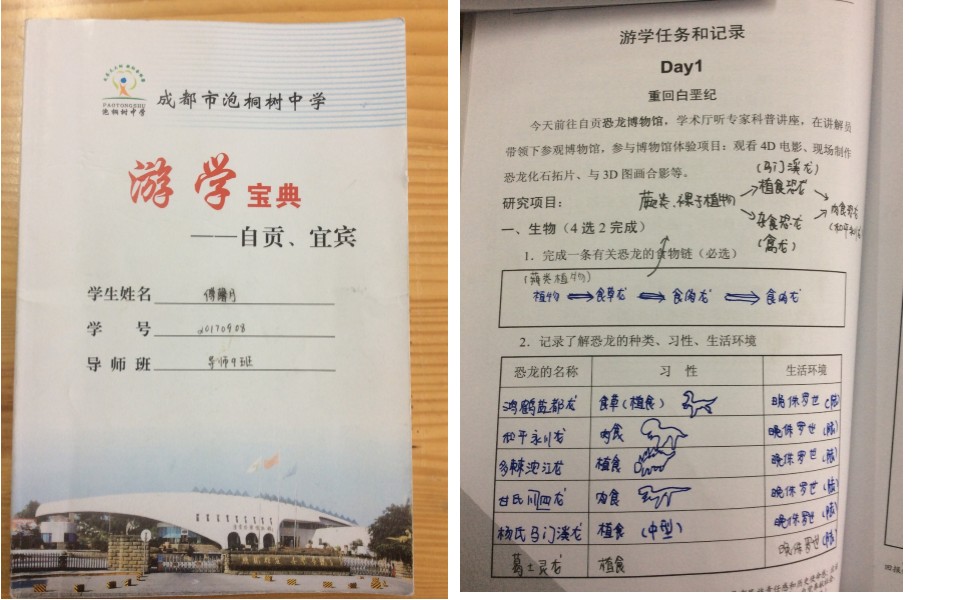 PAOTONGSHU
泡桐树中学
成都市泡桐树中学
游学宝典
——自贡、宜宾
学生姓名
学 号 20170908
导师班 导师9班
游学任务和记录
Day1
重回白垩纪
今天前往自贡恐龙博物馆，学术厅听专家科普讲座，在讲解员
带领下参观博物馆，参与博物馆体验项目：观看4D电影、现场制作
恐龙化石拓片、与3D图画合影等。
(马门溪龙)
研究项目：
蕨类、裸子植物
植食恐龙
杂食恐龙
肉食恐龙
(禽龙)
一、生物（4选2完成）
1．完成一条有关恐龙的食物链（必选）
(蕨类植物)
植物 食草龙 食肉龙 食肉龙
2．记录了解恐龙的种类、习性、生活环境
恐龙的名称 习 性 生活环境
鸿鹤盐都龙 食草(植食) 晚侏罗世(陆)
和平永川龙 肉食 晚侏罗世(陆)
多棘沱江龙 植食 晚侏罗世(陆)
甘氏四川龙 肉食 晚侏罗世(陆)
杨氏马门溪龙 植食 (中型) 晚侏罗世(陆)
植食 晚侏罗世(陆)